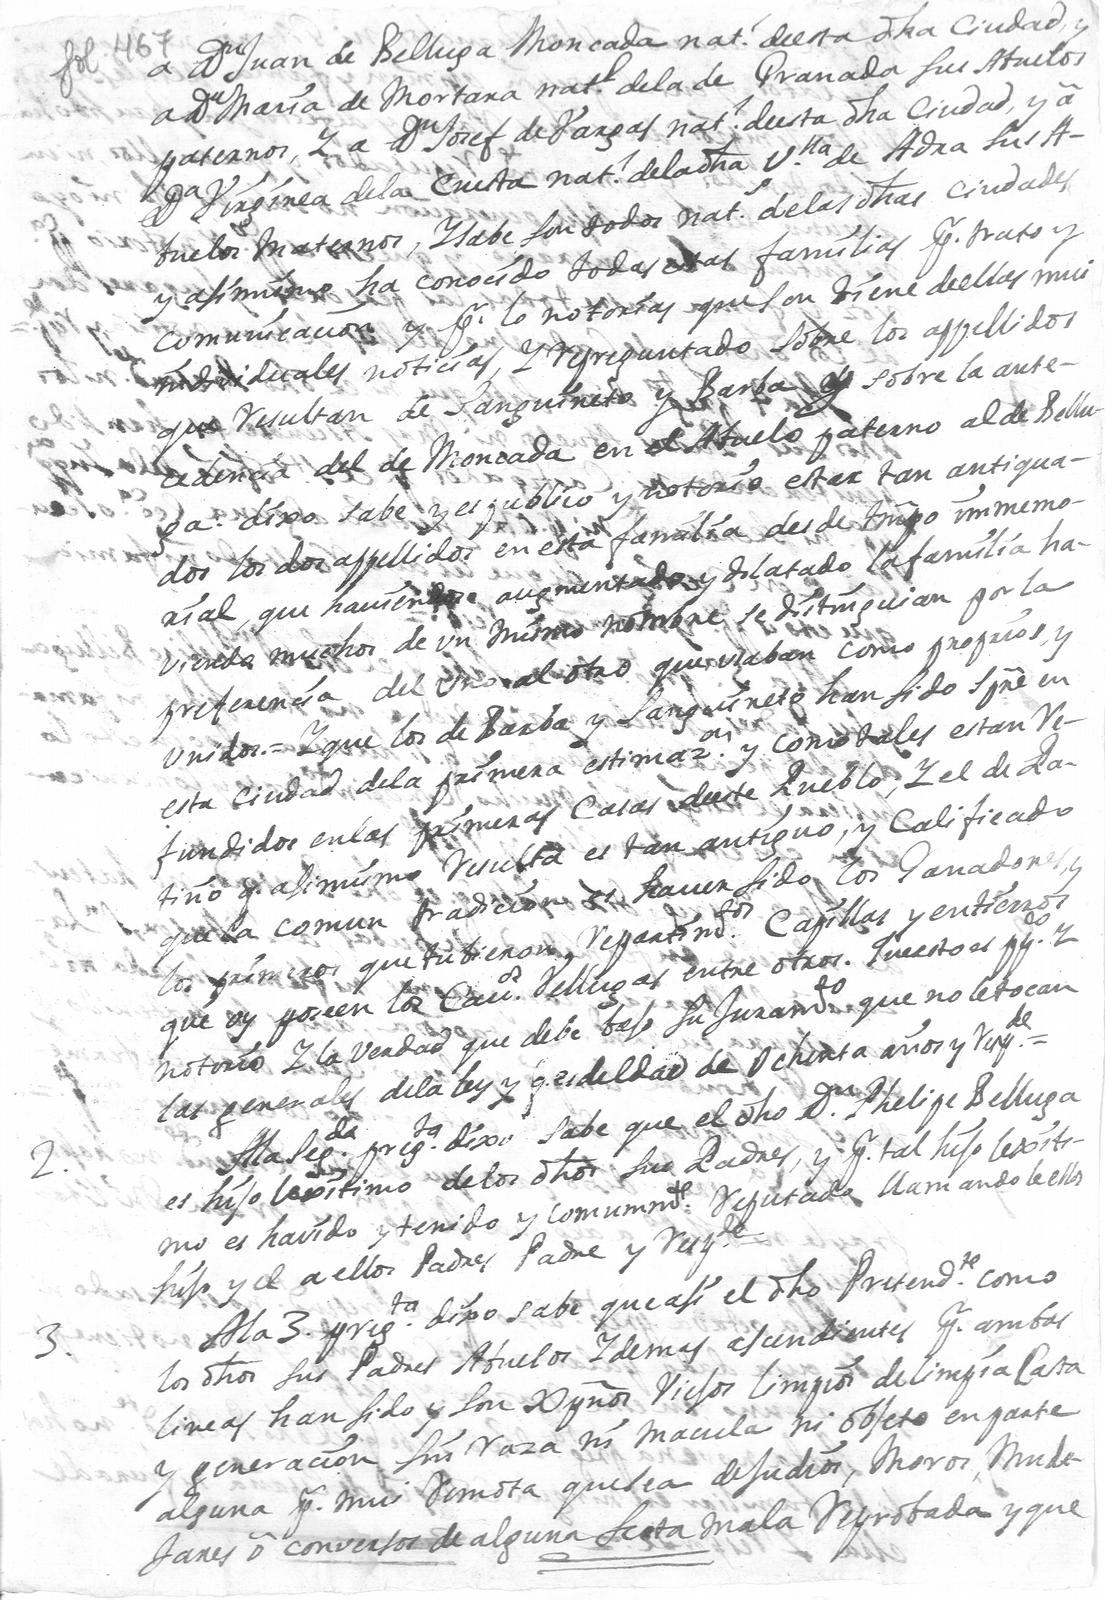 fol. 467
a Dn Juan de Belluga Moncada nat.l deesta dha Ciudad, y
a Da Maria de Mortara nat.l dela de Granada sus Abuelos
paternos, Y a Dn Josef de Vargas nat.l deesta dha Ciudad, y â
Da Virginea dela Cuesta nat.l dela dha V.lla de Adra sus A-
buelos Maternos, Y sabe son todos nat.s de las dhas Ciudades
y asimismo ha conocido todas estas familias p.r trato y
comunicacion y p.r lo notorias que son tiene deellas mui
individuales noticias, Y repreguntado sobre los appellidos
que resultan de Sanguineto y Barba y sobre la ante-
cedencia del de Moncada en el Abuelo paterno al de Bellu-
ga. dixo sabe y es publico y notorio estar tan antigua-
dos los dos appellidos en esta familia desde tmpo inmemo-
rial, que haviendose augmentado y dilatado la familia ha-
viendo muchos de un mismo nombre se distinguian por la
preferencia del uno al otro que usaban como proprios, y
unidos.= Y que los de Barba y Sanguineto han sido spre en
esta ciudad dela primera estimaz.on y como tales estan re-
fundidos en las primeras Casas deeste Pueblo, Y el de La-
tino q. asimismo resulta es tan antiguo, y Calificado
que la comun tradicion es haver sido los Ganadores, y
los primeros que tubieron repartim.tos Capillas y entierros
que oy poseen los Cav.os Vellugas entre otros. Que esto es pp.co Y
notorio Y la verdad que debe bajo su Juram.to que no le tocan
las generales dela ley y q. es de edad de ochenta años y resp.de =
2. Ala seg.da preg.ta dixo sabe que el dho Dn Phelipe Belluga
es hijo lexitimo de los dhos sus Padres, y p.r tal hijo lexiti-
mo es havido y tenido y comunm.te reputado llamandole ellos
hijo y el a ellos Padres Padre y resp.de =
3. Ala 3. preg.ta dixo sabe que asi el dho Pretend.te como
los dhos sus Padres Abuelos Y demas ascendientes p.r ambas
lineas han sido y son Xpños Viejos limpios de limpia Casta
y generacion sin raza ni macula ni objeto en parte
alguna p.r mui remota que sea de Judios, Moros, Mude-
Jares ô conversos de alguna Secta mala reprobada y que